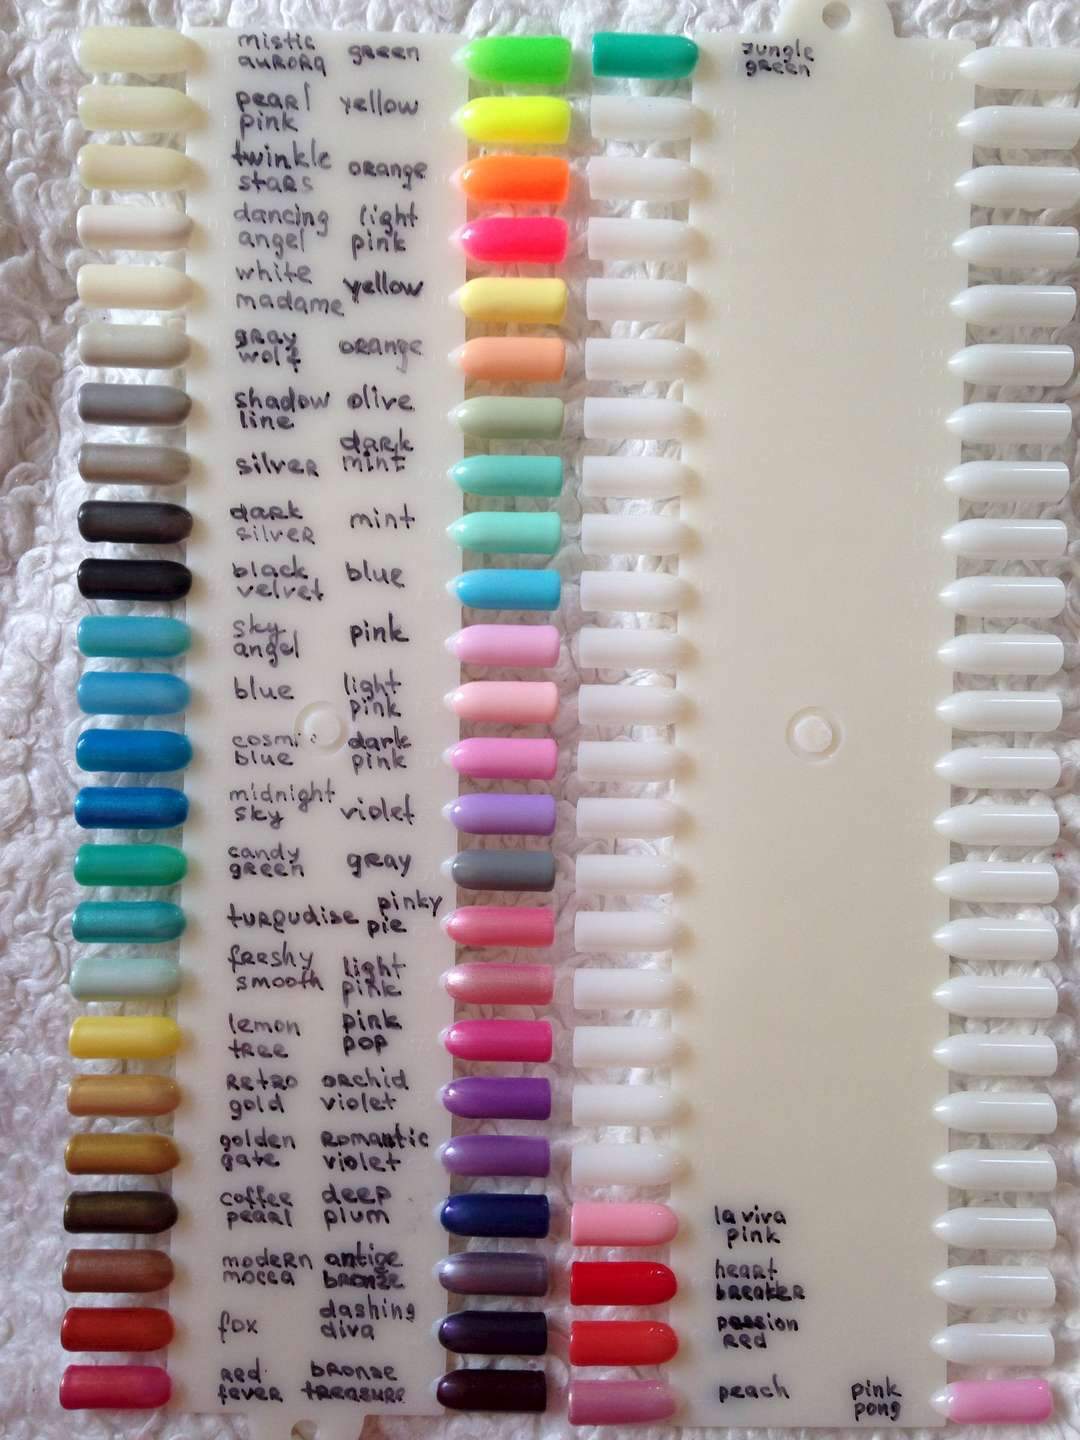 mistic
aurora
green
pearl
pink
yellow
twinkle
stars
orange
dancing
angel
light
pink
white
madame
yellow
gray
wolf
orange
shadow
line
olive
silver
dark
mint
dark
silver
mint
black
velvet
blue
sky
angel
pink
blue
light
pink
blue
dark
pink
midnight
sky
violet
candy
green
gray
turqudise
pinky
pie
freshy
smooth
light
pink
lemon
tree
pink
pop
retro
gold
orchid
violet
golden
gate
romantic
violet
coffee
pearl
deep
plum
modern
mocca
antige
bronze
fox
dashing
diva
red
fever
bronze
treasure
jungle
green
la viva
pink
heart
breaker
passion
red
peach
pink
pong